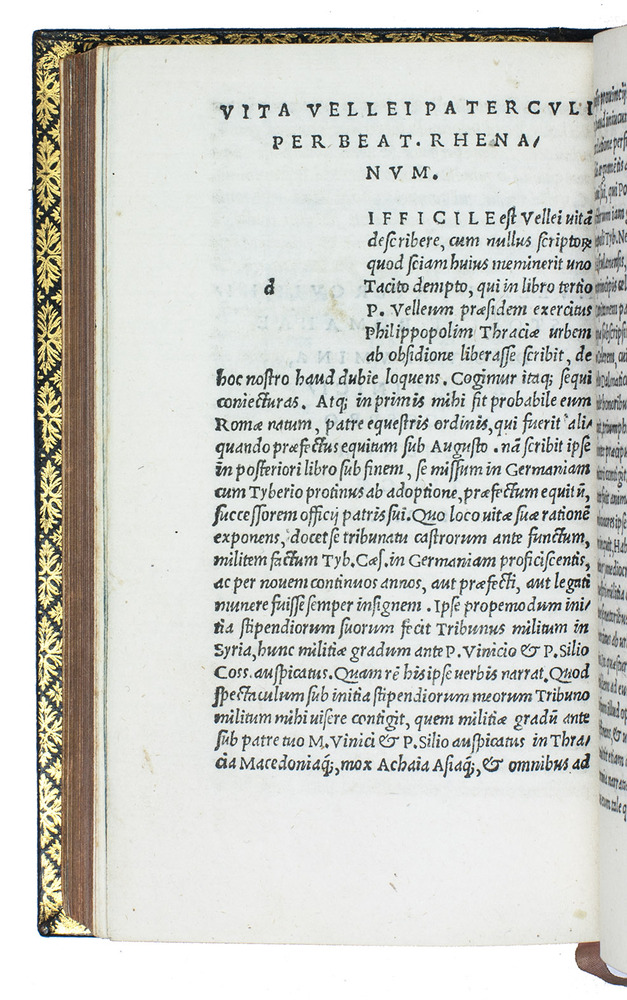 VITA VELLEI PATERCVLI
PER BEAT. RHENA/
NVM.
d
IFFICILE est Vellei uitã
describere, cum nullus scriptorꝝ
quod sciam huius meminerit uno
Tacito dempto, qui in libro tertio
P. Velleum præsidem exercitus
Philippopolim Thraciæ urbem
ab obsidione liberasse scribit, de
hoc nostro haud dubie loquens. Cogimur itaq; sequi
coniecturas. Atq; in primis mihi fit probabile eum
Romæ natum, patre equestris ordinis, qui fuerit ali/
quando præfectus equitum sub Augusto. nã scribit ipse
in posteriori libro sub finem, se missum in Germaniam
cum Tyberio protinus ab adoptione, præfectum equitũ,
successorem officij patris sui. Quo loco uitæ suæ rationẽ
exponens, docet se tribunatu castrorum ante functum,
militem factum Tyb. Cæs. in Germaniam proficiscentis,
ac per nouem continuos annos, aut præfecti, aut legati
munere fuisse semper insignem. Ipse propemodum ini/
tia stipendiorum suorum fecit Tribunus militum in
Syria, hunc militiæ gradum ante P. Vinicio & P. Silio
Coss. auspicatus. Quam rẽ his ipse uerbis narrat. Quod
spectaculum sub initia stipendiorum meorum Tribuno
militum mihi uisere contigit, quem militiæ gradũ ante
sub patre tuo M. Vinici & P. Silio auspicatus in Thra/
cia Macedoniaq;, mox Achaia Asiaq;, & omnibus ad